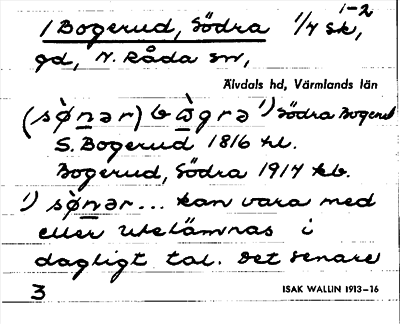 1 Bogerud, Södra 1/4 sk, 1-2
gd, N. Råda sn,
Älvdals hd, Värmlands län
(sø̀nər) bògrə 1) Södra Bogerud
S. Bogerud 1816 hl.
Bogerud, Södra 1914 kb.
1) sø̀nər... kan vara med
eller utelämnas i
dagligt tal. Det senare
3
ISAK WALLIN 1913-16